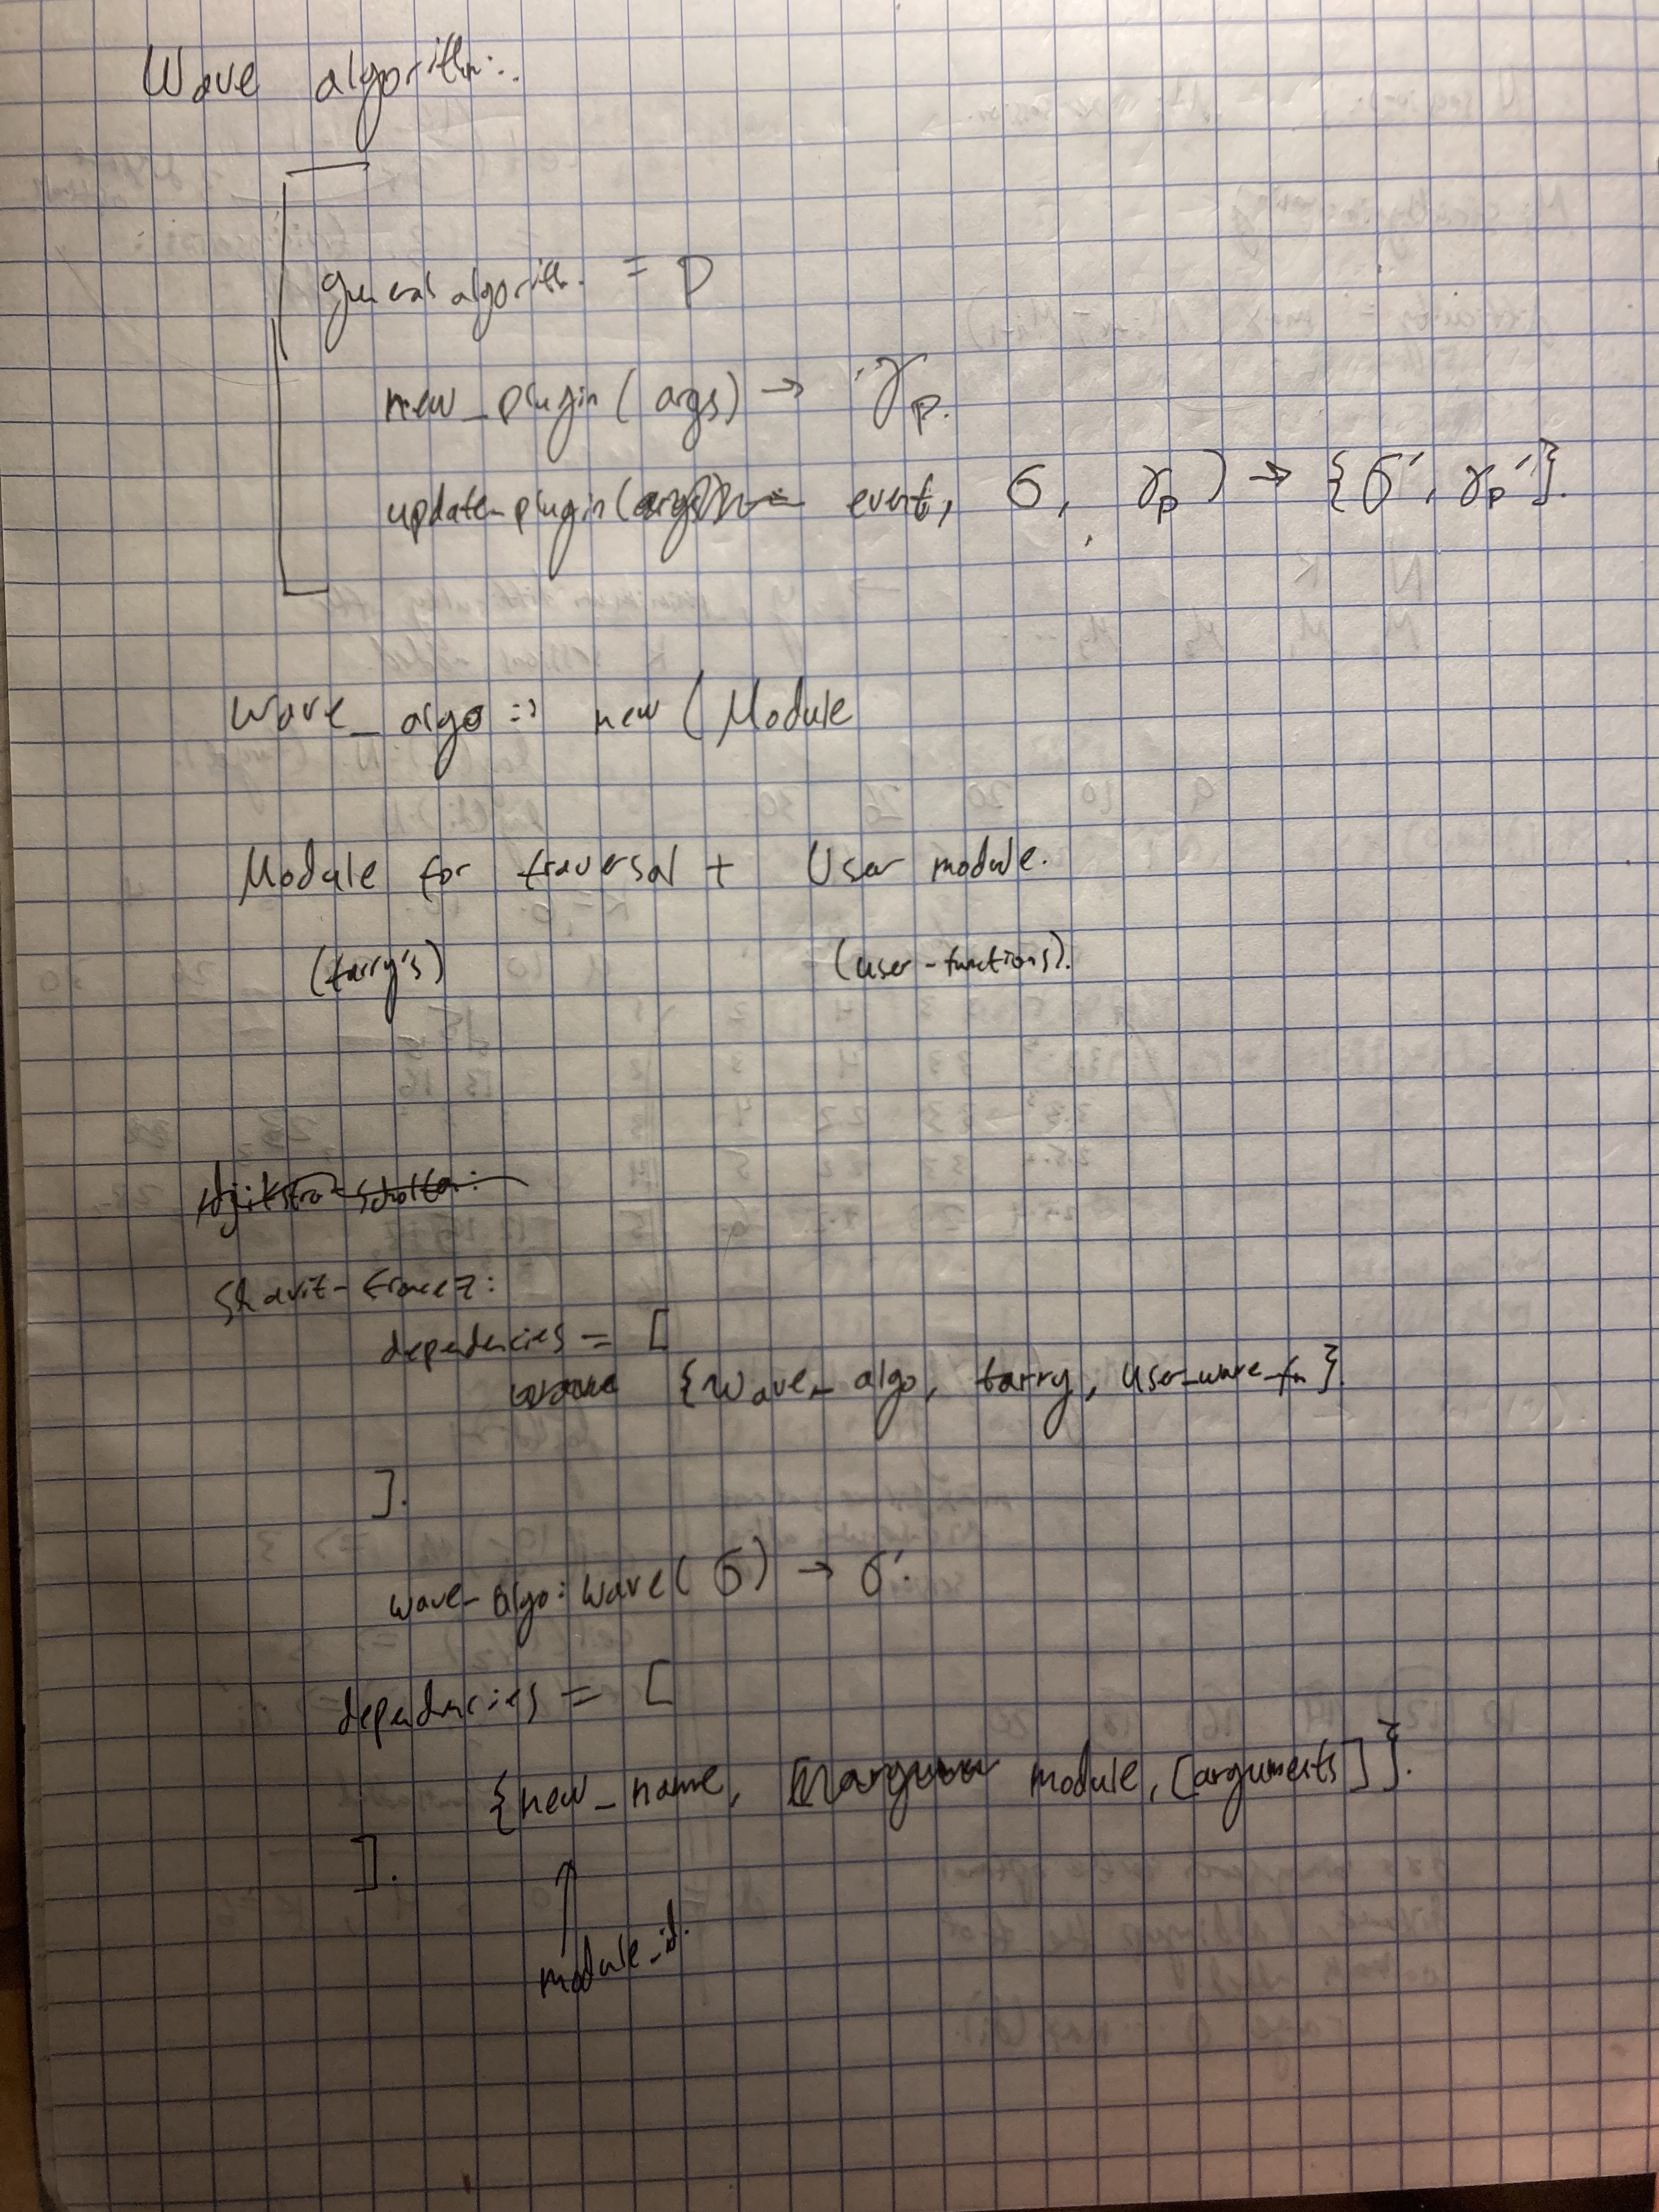 Wave algorithm:
general algorith. = P
new_plugin(args) → γp.
update_plugin( event, σ, γp) → {σ', γp'}.
wave_algo => new (Module
Module for traversal + User module.
(tarry's) (user-functions).
Shavit-francez:
dependencies = [
{wave_algo, tarry, user_wave_fn}
].
wave_algo:wave(σ) → σ'.
dependencies = [
{new_name, module, [arguments]}.
].
module_id.